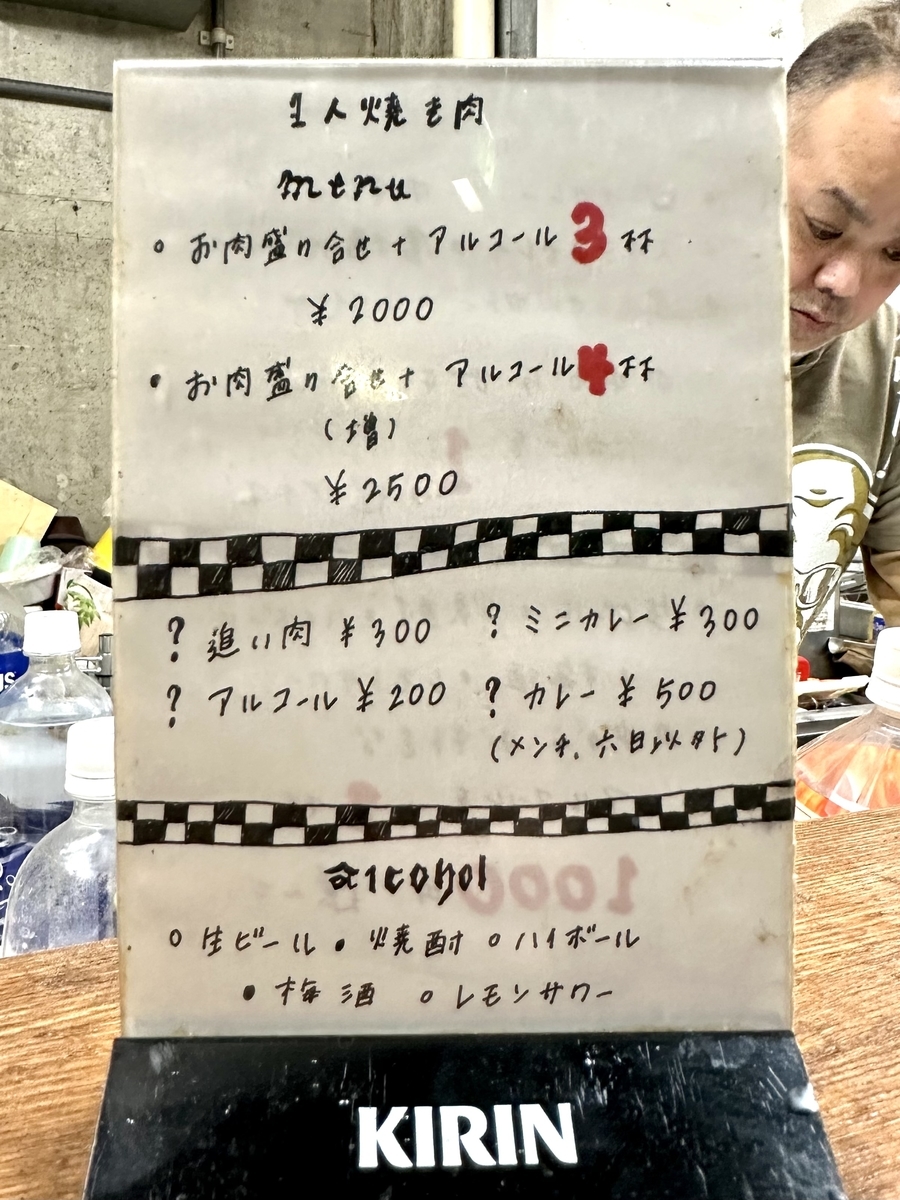 1人焼き肉
menu
○ お肉盛り合せ + アルコール 3 杯
¥ 2000
● お肉盛り合せ + アルコール 4 杯
(増)
¥ 2500
? 追い肉 ¥300 ? ミニカレー ¥300
? アルコール ¥200 ? カレー ¥ 500
(メンチ、六日以外)
alcohol
○ 生ビール ● 焼酎 ○ ハイボール
● 梅酒 ○ レモンサワー
KIRIN